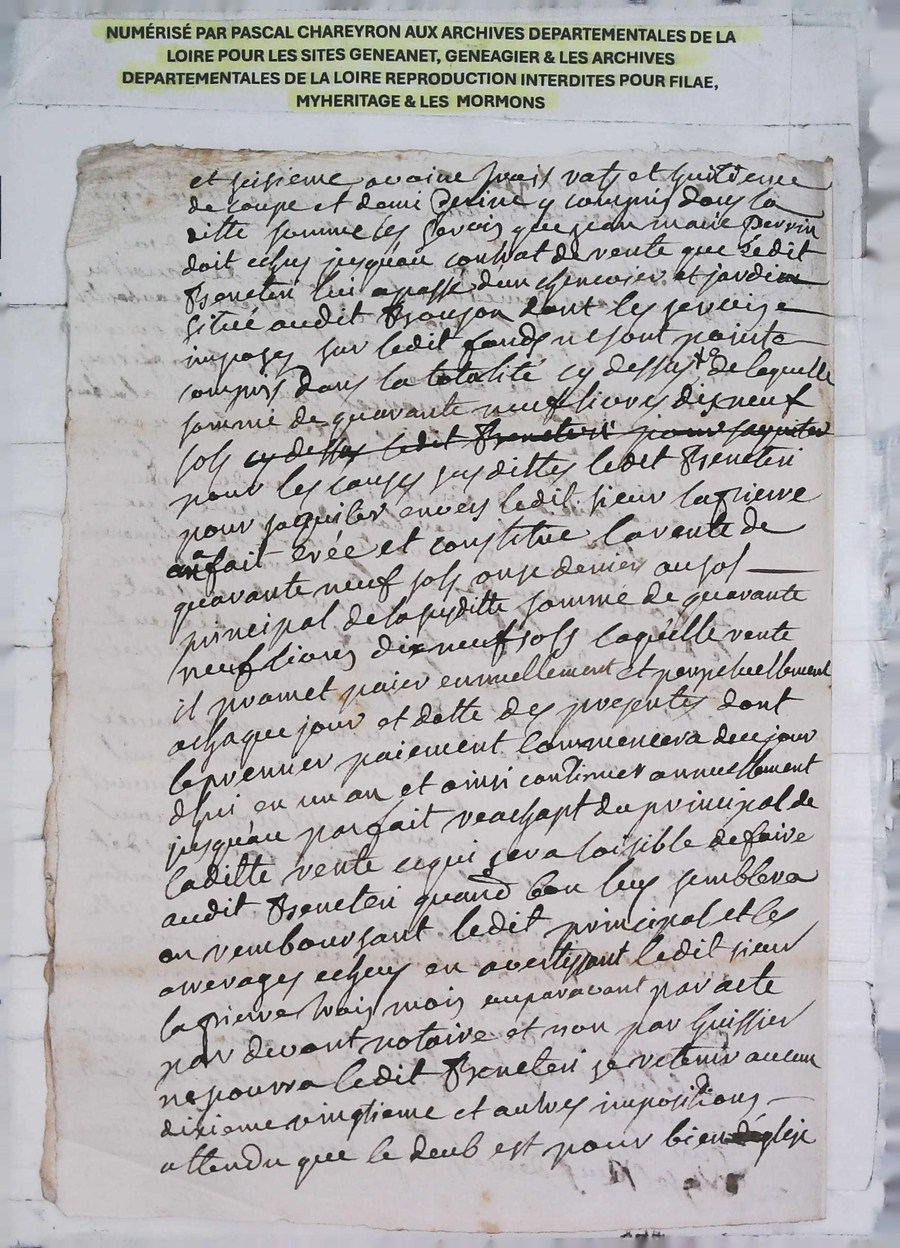 NUMÉRISÉ PAR PASCAL CHAREYRON AUX ARCHIVES DEPARTEMENTALES DE LA
LOIRE POUR LES SITES GENEANET, GENEAGIER & LES ARCHIVES
DEPARTEMENTALES DE LA LOIRE REPRODUCTION INTERDITES POUR FILAE,
MYHERITAGE & LES MORMONS
et avoine trois rats et
de coupe et demi y compris dans la
ditte somme les servis que jean marie perrin
doit echus jusquau contrat de vente que ledit
lui a passé dun chenevier et jardin
situé audit dont les servis
imposes sur ledit fonds ne sont points
compris dans la totalité cy dessus de laquelle
somme de quarante neuf livres dix neuf
sols cy dessus ledit pour saquiter
pour les causes susdittes ledit
pour saquiter envers ledit sieur lapierre
a fait crée et constitue la rente de
quarante neuf sols onze deniers au sol
principal de la susditte somme de quarante
neuf livres dix neuf sols laquelle rente
il promet paier ennuellement et perpetuellement
a chaque jour et datte des presentes dont
le premier paiement commencera de ce jour
dhui en un an et ainsi continuer annuellement
jusquau parfait reachapt du principal de
laditte rente ce qui sera loisible de faire
audit quand bon luy semblera
en remboursant ledit principal et les
arrerages echeus en avertissant ledit sieur
lapierre trois mois auparavant par acte
par devant notaire et non par huissier
ne pourra ledit se retenir aucun
dixieme vingtieme et autres impositions
attendu que le deub est pour bien déglise